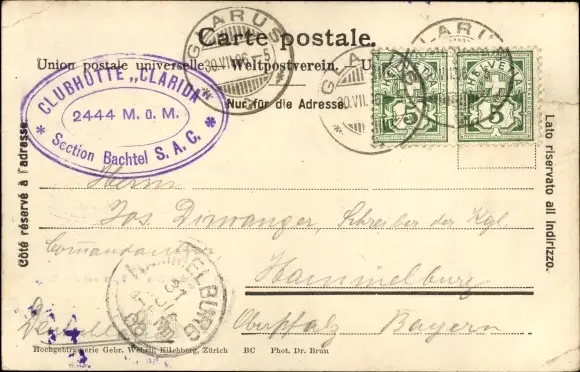 Carte postale.
Union postale universelle. Weltpostverein. U
Nur für die Adresse.
GLARUS
GLARUS
GLARUS
30.VII.
HELVETIA
5
HELVETIA
5
CLUBHÜTTE „CLARIDA"
2444 M. ü. M.
* Section Bachtel S. A. C. *
Côté réservé à l'adresse
Lato riservato all indirizzo.
Herrn
Jos. Dirwanger, Schreiber der Kgl.
Commandantur
Hammelburg
Oberpfalz Bayern
HAMMELBURG
Hochgebirgsserie Gebr. Wehrli, Kilchberg, Zürich BC Phot. Dr. Brun